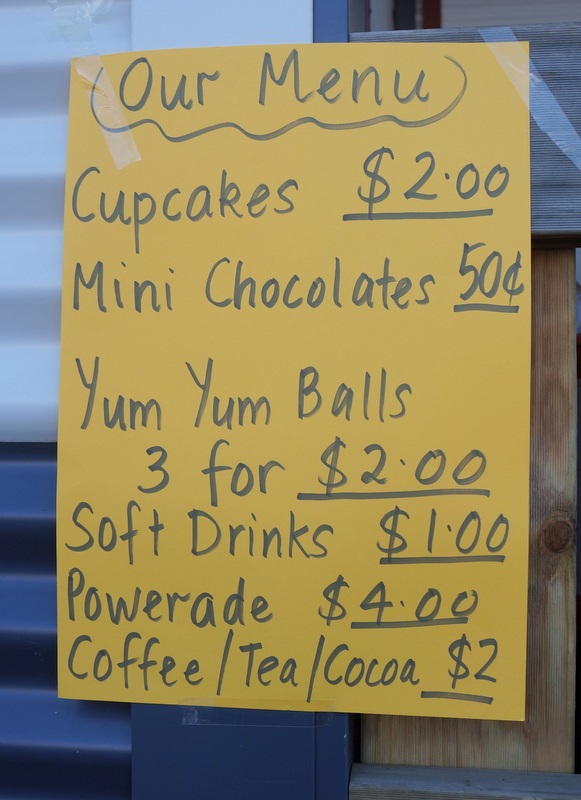 Our Menu
Cupcakes $2.00
Mini Chocolates 50¢
Yum Yum Balls
3 for $2.00
Soft Drinks $1.00
Powerade $4.00
Coffee/Tea/Cocoa $2